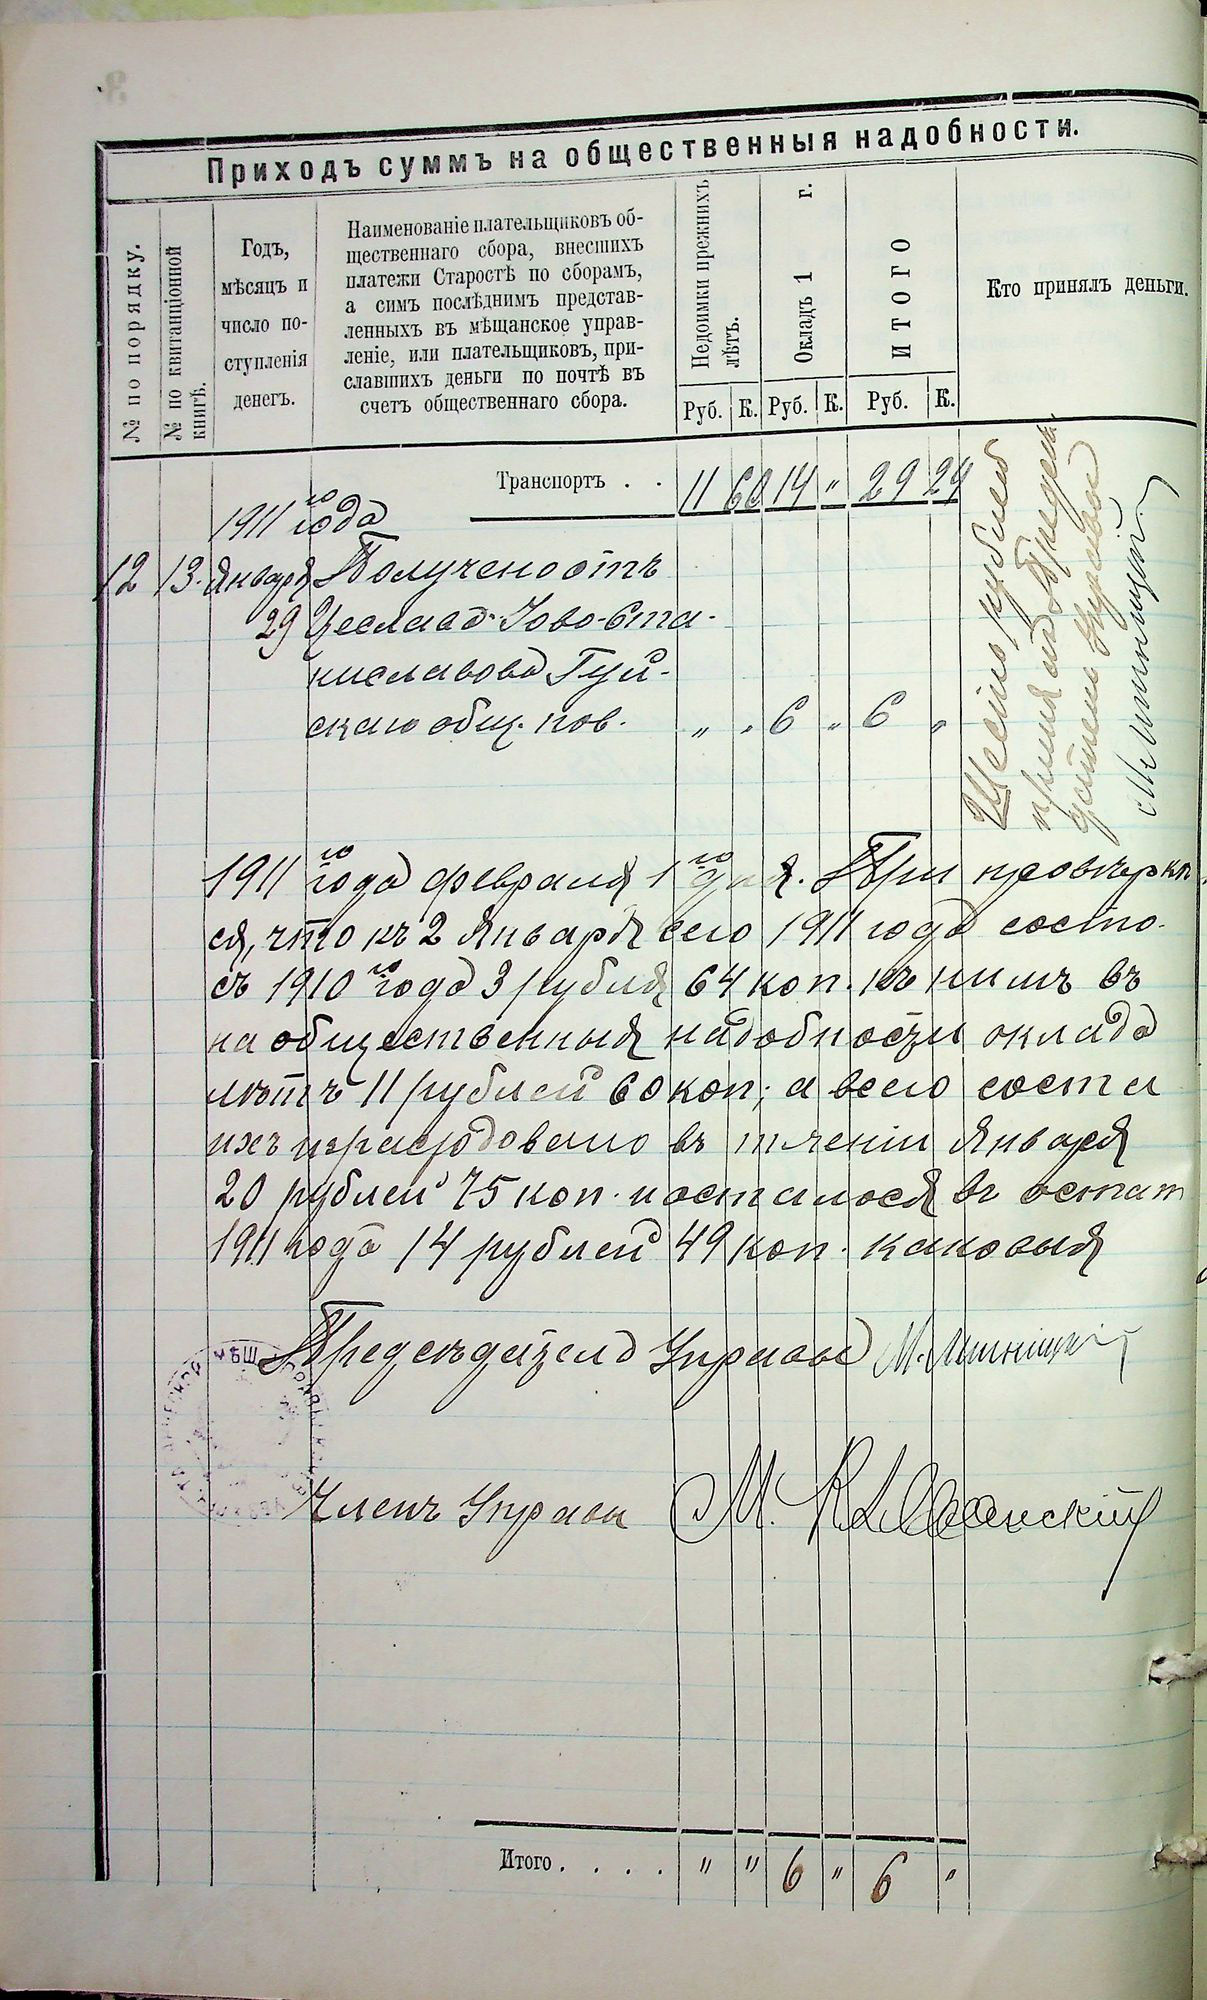 Приходъ суммъ на общественныя надобности.
№ по порядку.
№ по квитанціонной
книгѣ.
Годъ,
мѣсяцъ и
число по-
ступленія
денегъ.
Наименованіе плательщиковъ об-
щественнаго сбора, внесшихъ
платежи Старостѣ по сборамъ,
а симъ послѣднимъ представ-
ленныхъ въ мѣщанское управ-
леніе, или плательщиковъ, при-
славшихъ деньги по почтѣ въ
счетъ общественнаго сбора.
Недоимки прежнихъ
лѣтъ.
Окладъ 1 г.
ИТОГО
Кто принялъ деньги.
Руб. К. Руб. К. Руб. К.
Транспортъ . . 11 60 14 " 29 24
1911 го года
12 13. Января Получено отъ
29
ниславова Гуй-
скаго общ. пов. " " 6 " 6 "
Шесть рублей
принялъ Предсѣ-
датель Управы
1911 го года февраля 1 го дня. При провѣрки
ся, что къ 2 Января сего 1911 года состо-
съ 1910 го года 3 рубля 64 коп. къ нимъ въ
на общественныя надобности оклада
лѣтъ 11 рублей 60 коп; а всего соста
ихъ израсходовано въ теченіи Января
20 рублей 75 коп. и осталося въ остат
1911 года 14 рублей 49 коп. каковыя
Предсѣдатель Управы
Членъ Управы М.
Итого . . . . " " 6 " 6 "